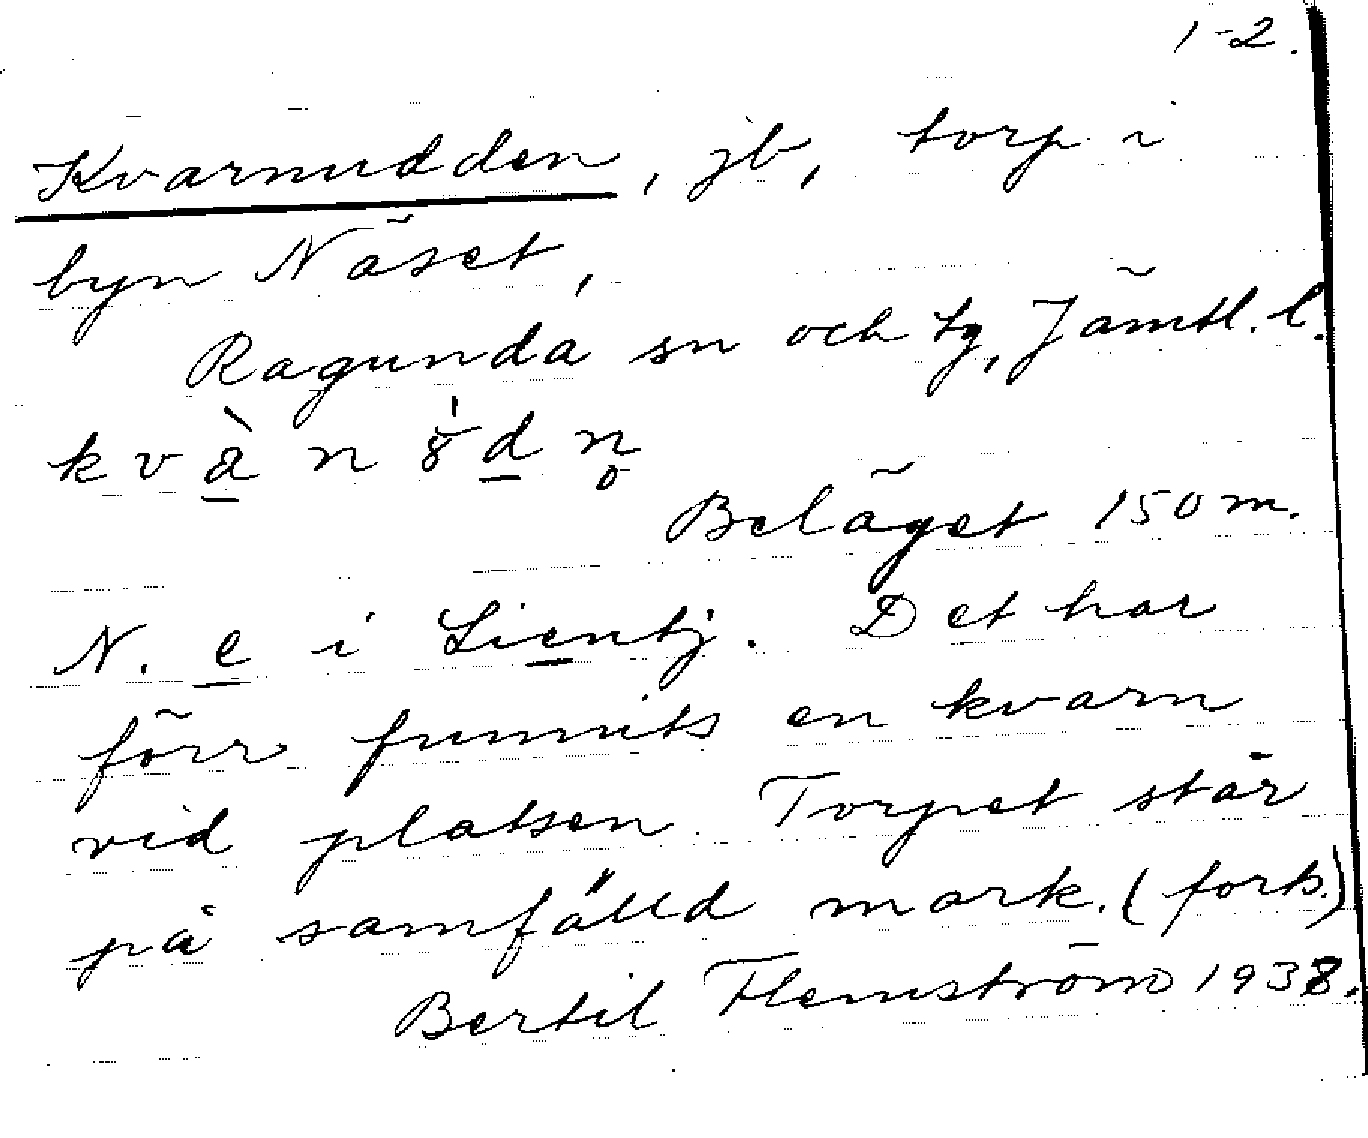 1-2.
Kvarnudden, jb, torp i
byn Näset,
Ragunda sn och tg, Jämtl. l.
kvàn d n
Beläget 150 m.
N. e i Lientj. Det har
förr funnits en kvarn
vid platsen. Torpet står
på samfälld mark. (forts.)
Bertil Flemström 1938.